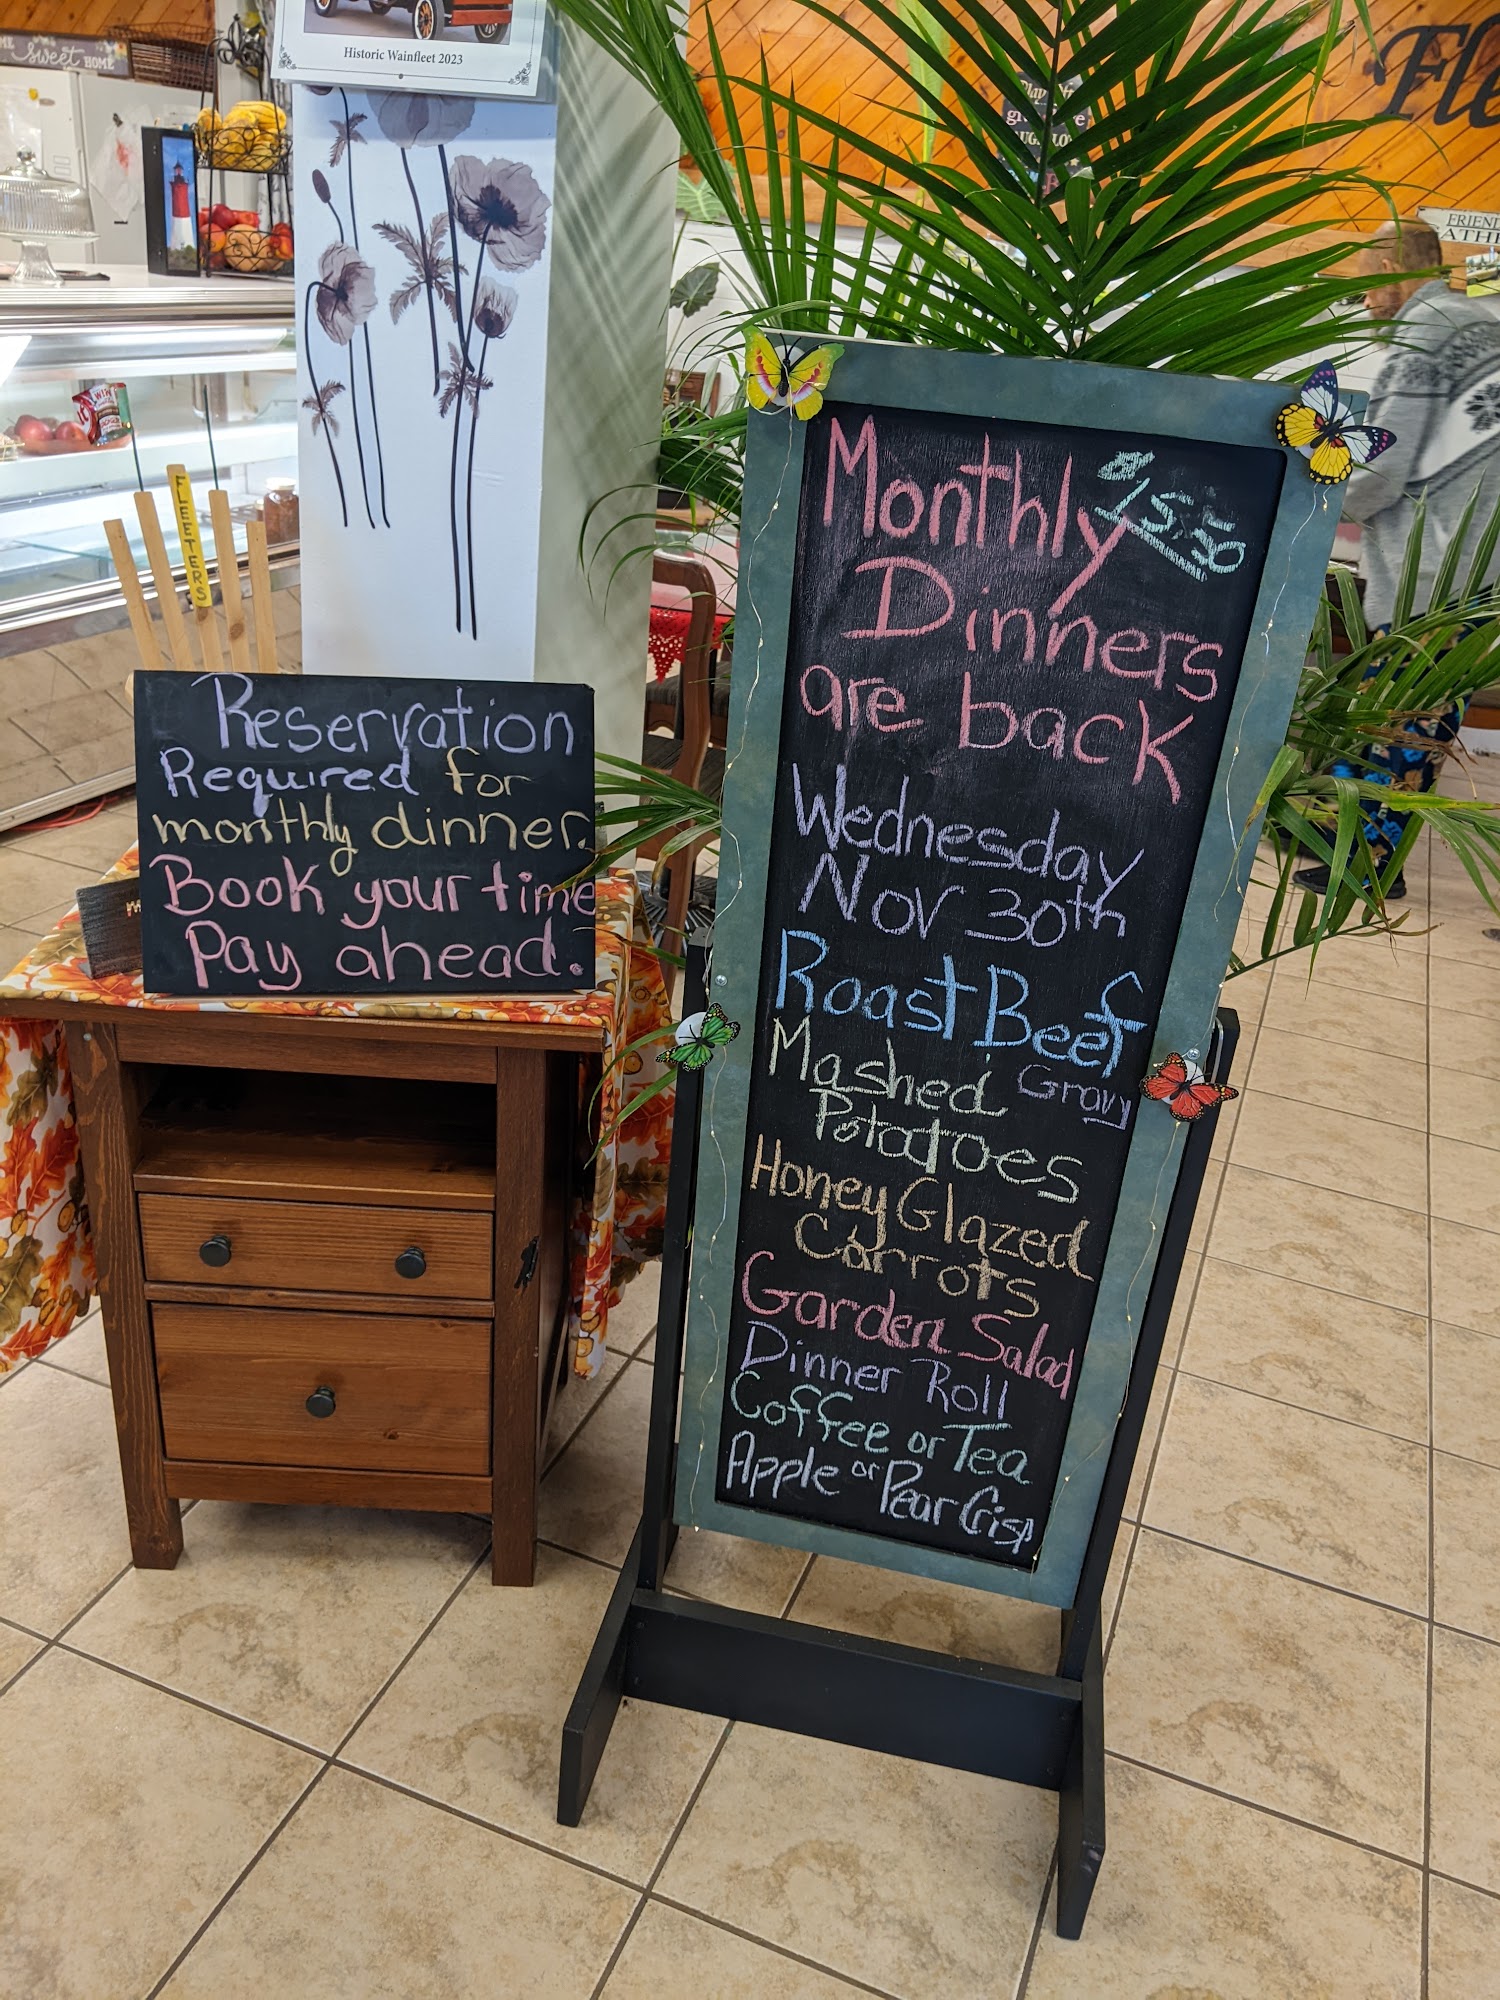 sweet HOME
Historic Wainfleet 2023
FLEETERS
Reservation
Required for
monthly dinner.
Book your time
Pay ahead.
Monthly $15.50
Dinners
are back
Wednesday
Nov 30th
Roast Beef
Mashed Gravy
Potatoes
Honey Glazed
Carrots
Garden Salad
Dinner Roll
Coffee or Tea
Apple or Pear Crisp
Fle
FRIEN
GATHE